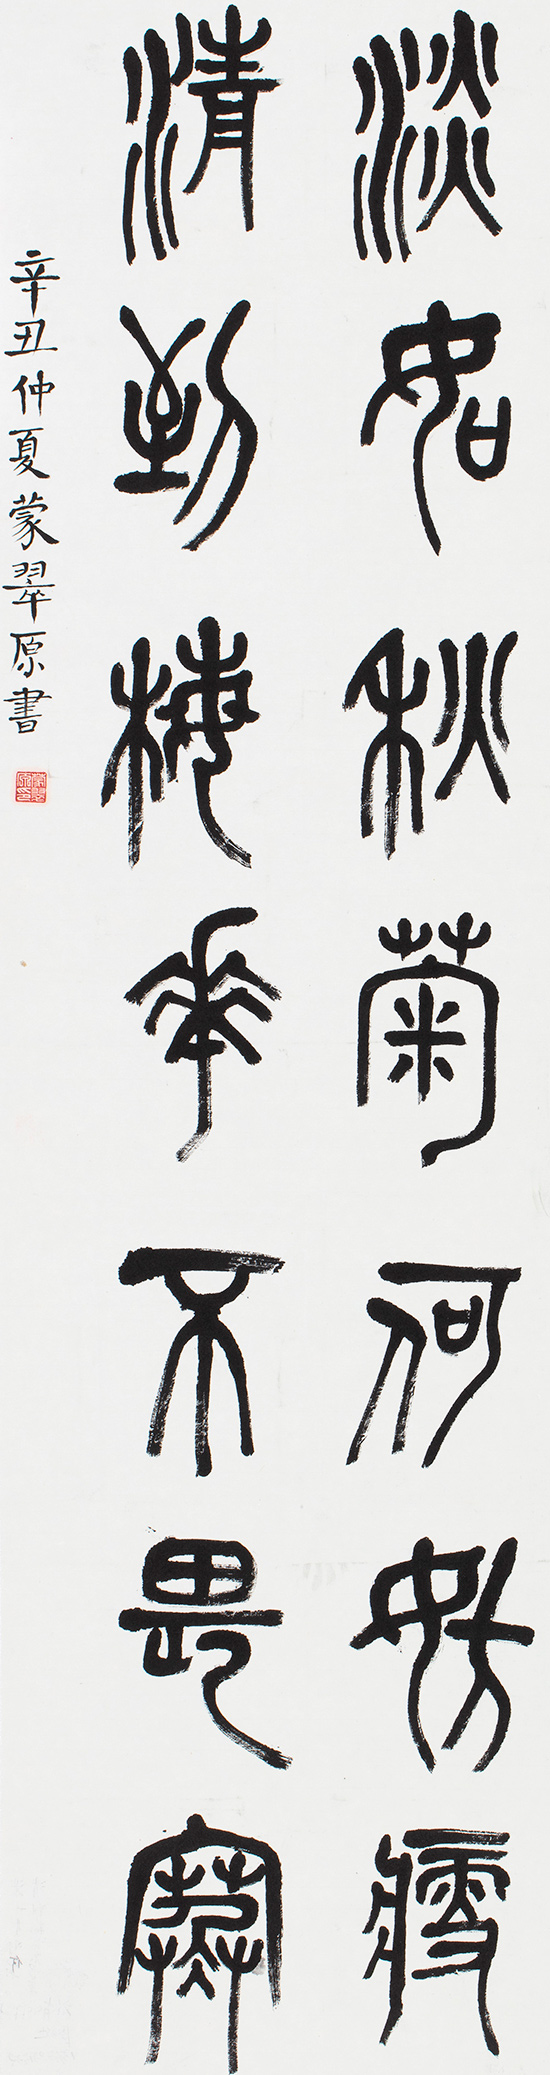 淡如秋菊何妨瘦
清到梅花不畏寒
辛丑仲夏蒙翠原書